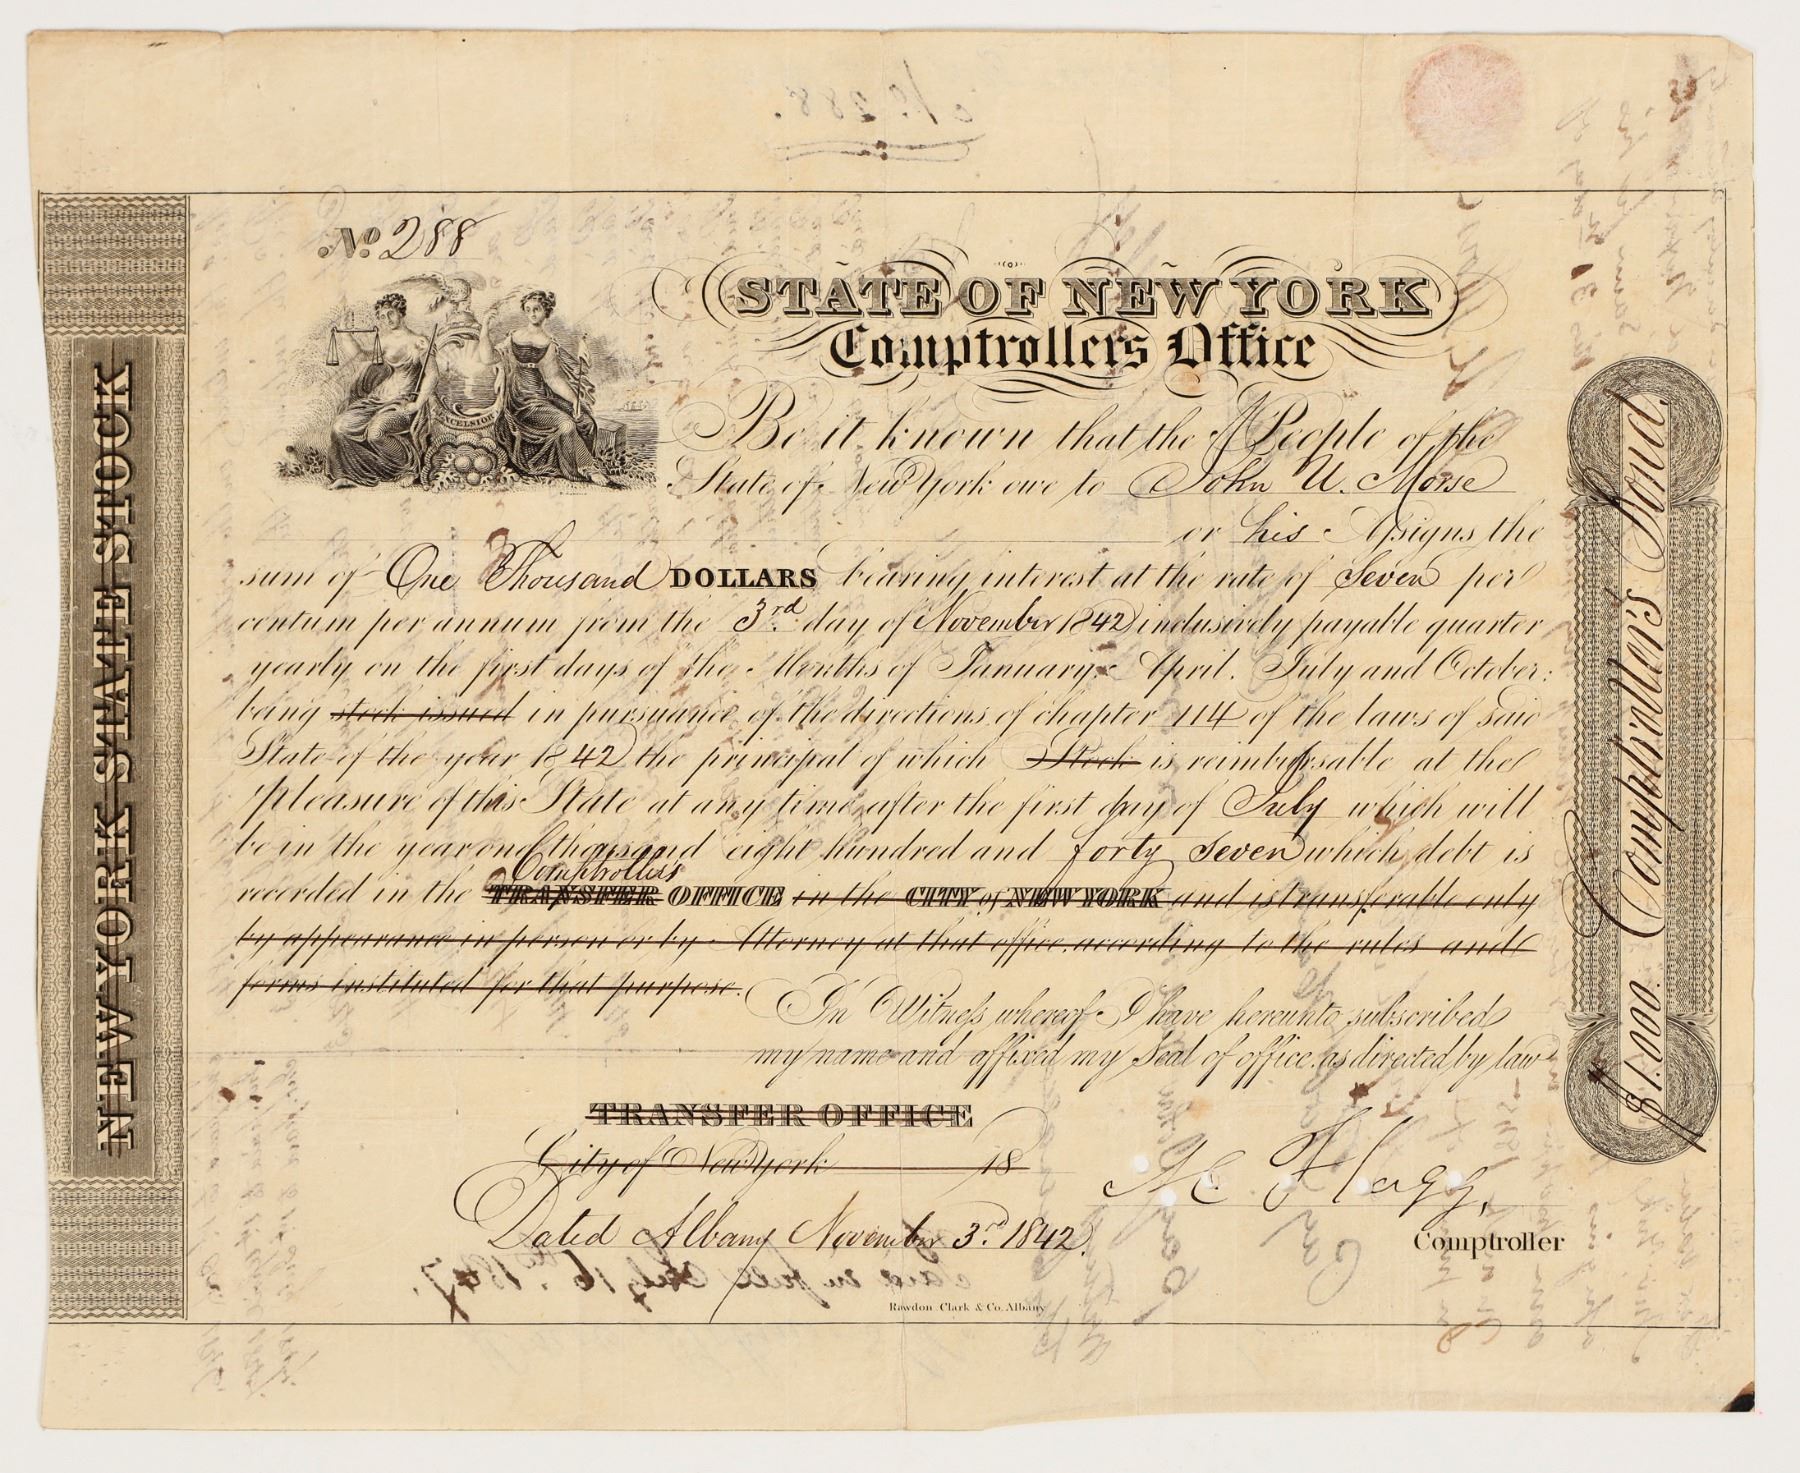 No. 288
STATE OF NEW YORK
Comptrollers Office
EXCELSIOR
Be it known that the People of the
State of New York owe to John U. Morse
or his Assigns the
sum of One Thousand DOLLARS bearing interest at the rate of Seven per
centum per annum from the 3rd day of November 1842 inclusively payable quarter
yearly on the first days of the Months of January, April, July and October:
being stock issued in pursuance of the directions of chapter 114 of the laws of said
State of the year 1842 the principal of which Stock is reimbursable at the
pleasure of this State at any time after the first day of July which will
be in the year one thousand eight hundred and forty seven which debt is
Comptroller's
recorded in the TRANSFER OFFICE in the CITY of NEW YORK and is transferable only
by appearance in person or by Attorney at that office, according to the rules and
forms instituted for that purpose.
In Witness whereof I have hereunto subscribed
my name and affixed my Seal of office, as directed by law
TRANSFER OFFICE
City of New York 18
Dated Albany November 3rd 1842.
A C Flagg,
Comptroller
Rawdon, Clark & Co. Albany
NEW YORK STATE STOCK
$1.000. Comptroller's Bond.
No. 288.
Paid in full July 16. 1847.